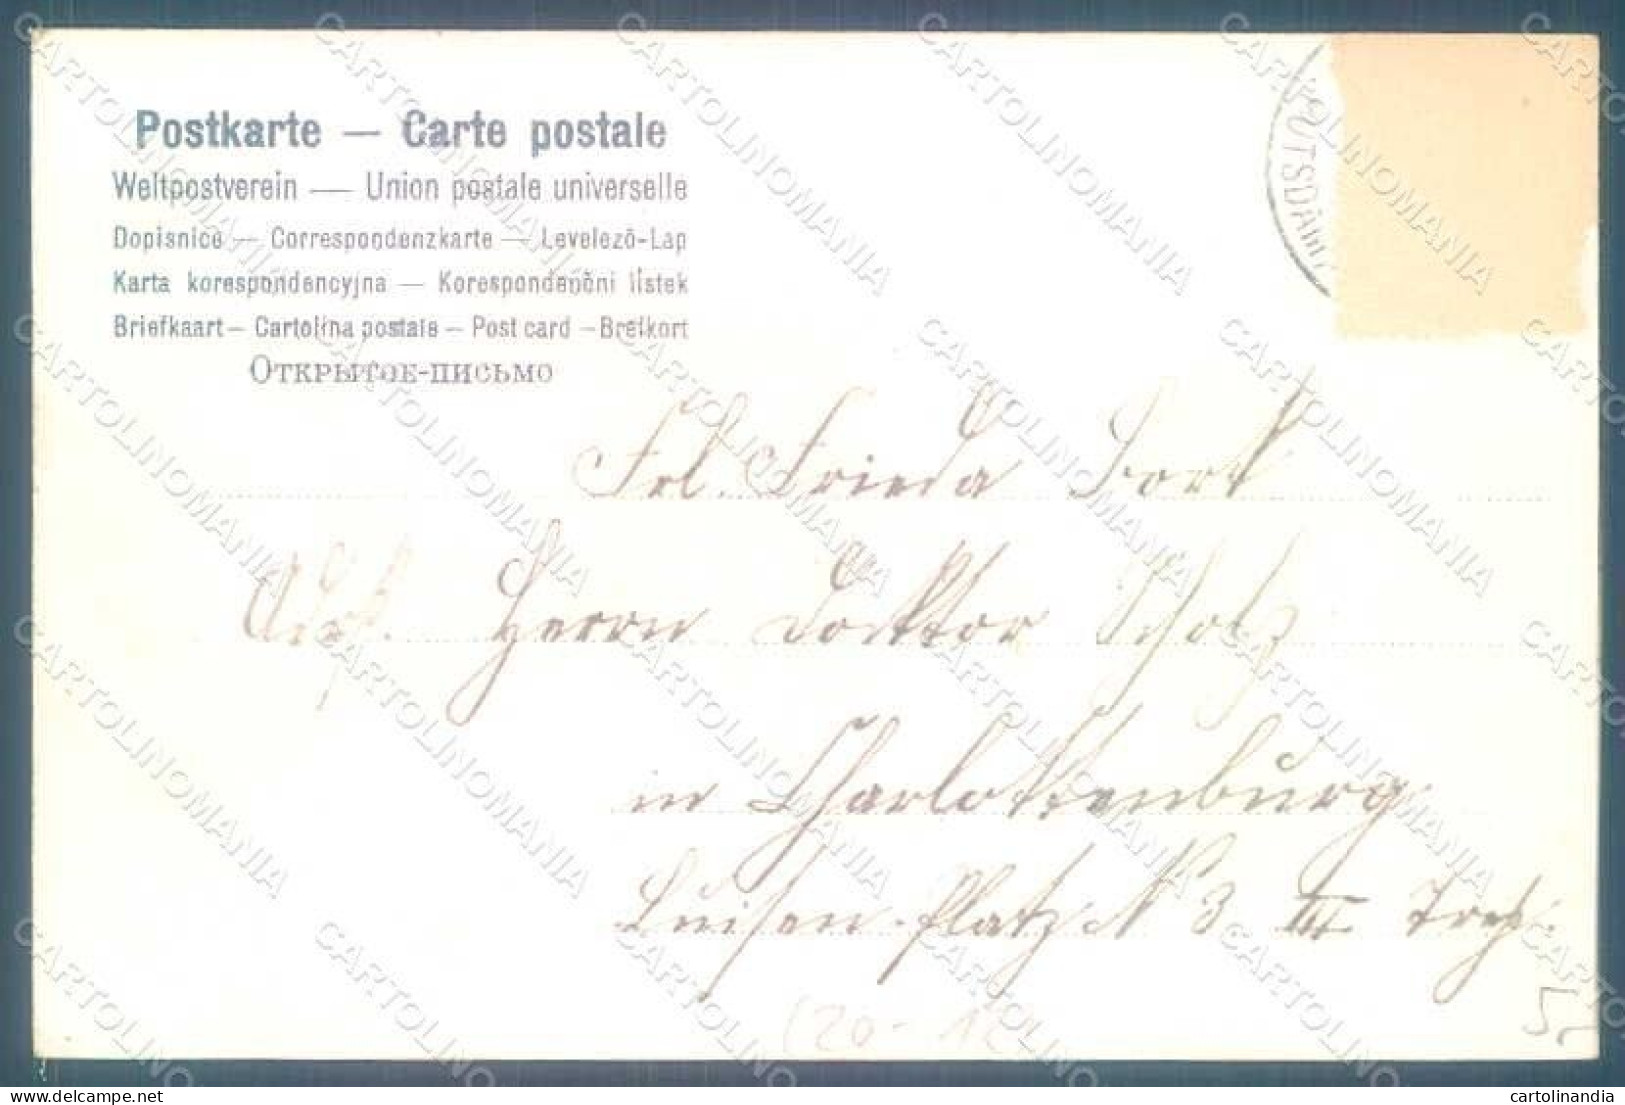 Postkarte — Carte postale
Weltpostverein — Union postale universelle
Dopisnice — Correspondenzkarte — Levelezõ-Lap
Karta korespondencyjna — Korespondenčni listek
Briefkaart – Cartolina postale – Post card – Brefkort
Открытое-письмо
Frl. Frieda
Herrn Doktor Scholz
in Charlottenburg
Luisen-Platz N 3 III
CARTOLINOMANIA
delcampe.net
cartolinandia